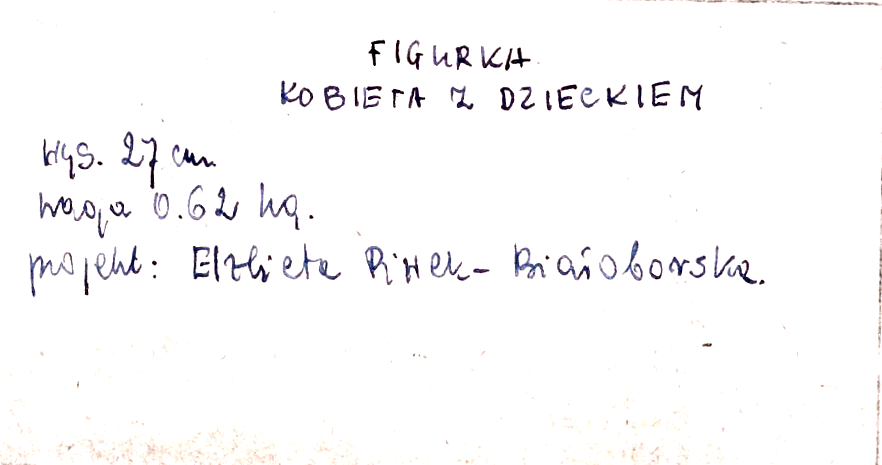 FIGURKA
KOBIETA Z DZIECKIEM
wys. 27 cm
waga 0.62 kg.
projekt: Elżbieta Piwek-Białoborska.